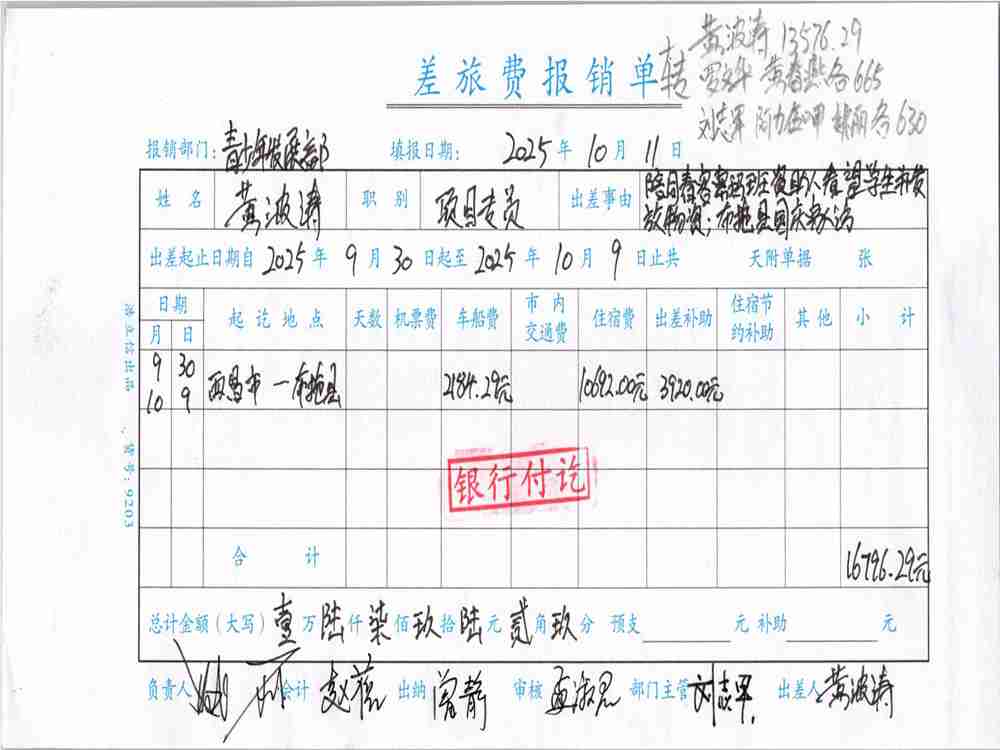 黄波涛 13576.29
差旅费报销单
转
黄春燕各665
刘志军 各630
报销部门：青少年发展部 填报日期： 2025 年 10 月 11 日
姓名 黄波涛 职别 项目专员 出差事由
看望学生和发
放物资；布拖县国庆家访
出差起止日期自 2025 年 9 月 30 日起至 2025 年 10 月 9 日止共 天附单据 张
日期 起讫地点 天数 机票费 车船费 市内交通费 住宿费 出差补助 住宿节约补助 其他 小计
月 日
9 30 西昌市—布拖县 2184.29元 10692.00元 3920.00元
10 9
银行付讫
合计 16796.29元
总计金额（大写） 壹 万 陆 仟 柒 佰 玖 拾 陆 元 贰 角 玖 分 预支 元 补助 元
负责人 会计 出纳 曾静 审核 部门主管 刘志军 出差人 黄波涛
货号：9203